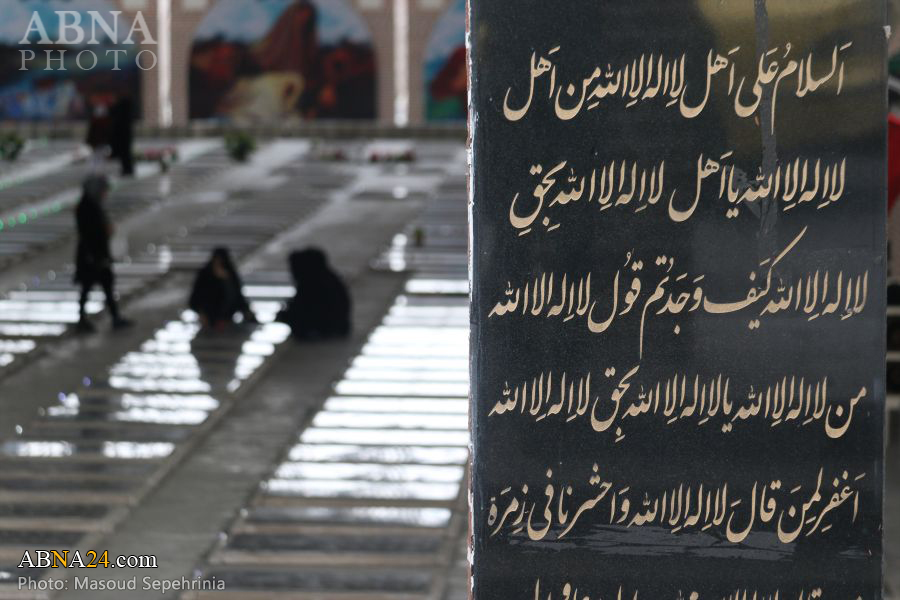 ABNA
PHOTO
اَلسلامُ عَلیَ اَهل لااله الاالله مِن اَهل
لااِله اِلاالله یااَهل لااِله اِلاالله بِحَقِ
لااِله اِلاالله کَیَف وَجَدتُم قَوُل لااِله الاالله
من لااِله اِلاالله یالااِله اِلاالله بِحقِ لااِله اِلاالله
اَغفِر لِمِنَ قالَ لااِله اِلاالله وَاحشرنا فی زِمرَة
ABNA24.com
Photo: Masoud Sepehrinia